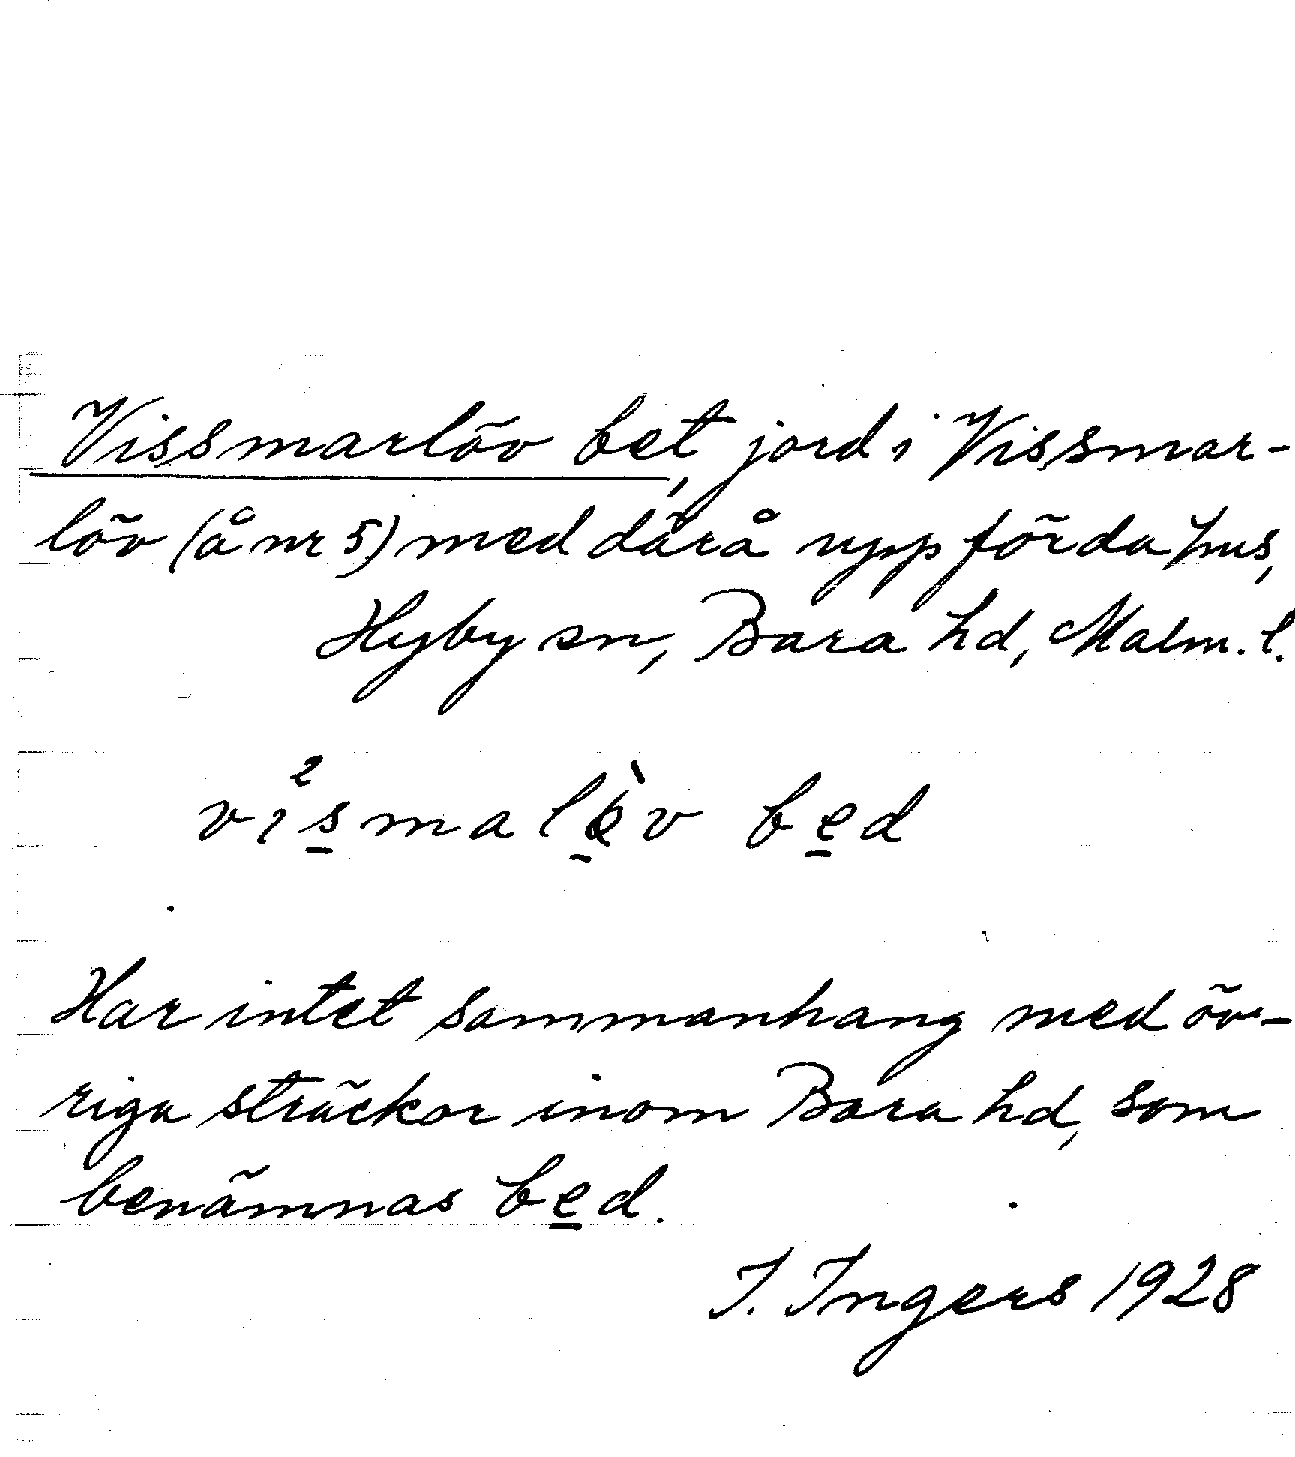 Vissmarlöv bet, jord i Vissmar-
löv (å nr 5) med därå uppförda hus,
Hyby sn, Bara hd, Malm. l.
bed
Har intet sammanhang med öv-
riga sträckor inom Bara hd, som
benämnas bed.
I. Ingers 1928